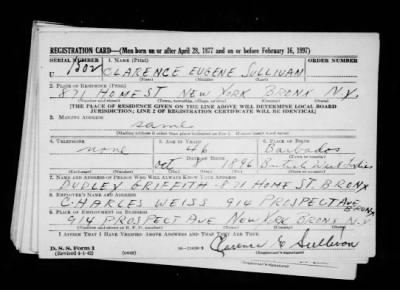 REGISTRATION CARD—(Men born on or after April 28, 1877 and on or before February 16, 1897)
SERIAL NUMBER 1. NAME (Print) ORDER NUMBER
U 1302 CLARENCE EUGENE SULLIVAN
2. PLACE OF RESIDENCE (Print)
871 HOME ST NEW YORK BRONX N.Y.
(Number and street) (Town, township, village, or city) (County) (State)
[THE PLACE OF RESIDENCE GIVEN ON THE LINE ABOVE WILL DETERMINE LOCAL BOARD
JURISDICTION; LINE 2 OF REGISTRATION CERTIFICATE WILL BE IDENTICAL]
3. MAILING ADDRESS
same
[Mailing address if other than place indicated on line 2. If same insert word same]
4. TELEPHONE 5. AGE IN YEARS 6. PLACE OF BIRTH
none 46 Barbados
DATE OF BIRTH
Oct 1896 British West Indies
7. NAME AND ADDRESS OF PERSON WHO WILL ALWAYS KNOW YOUR ADDRESS
DUDLEY GRIFFITH-871 HOME ST BRONX
8. EMPLOYER'S NAME AND ADDRESS
CHARLES WEISS 914 PROSPECT AVE BRONX
9. PLACE OF EMPLOYMENT OR BUSINESS
914 PROSPECT AVE NEW YORK BRONX N.Y
(Number and street or R. F. D. number) (Town) (County) (State)
I AFFIRM THAT I HAVE VERIFIED ABOVE ANSWERS AND THAT THEY ARE TRUE.
D. S. S. Form 1
(Revised 4-1-42) (over) Clarence E Sullivan
(Registrant's signature)